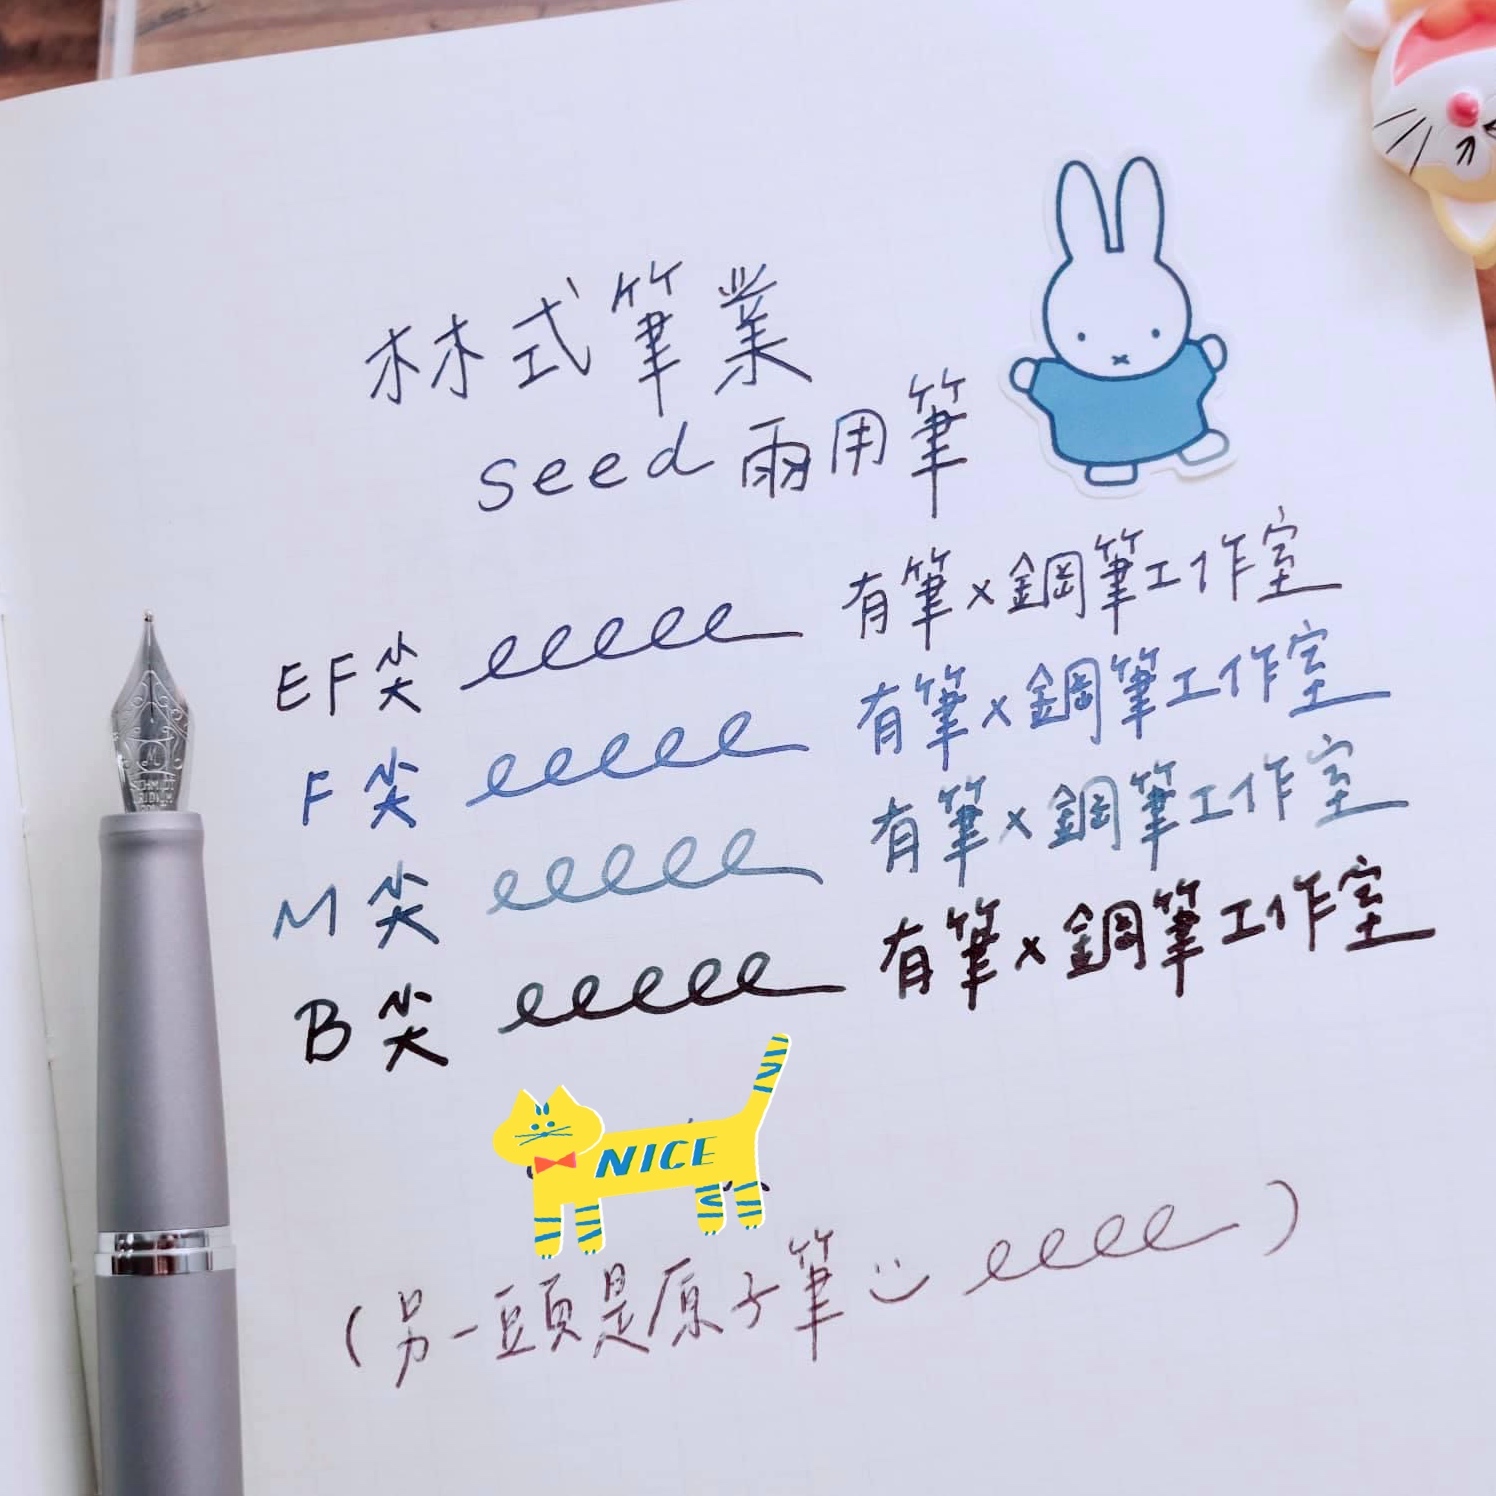 林式筆業
seed 兩用筆
EF尖 eeeee 有筆×鋼筆工作室
F尖 eeeee 有筆×鋼筆工作室
M尖 eeeee 有筆×鋼筆工作室
B尖 eeeee 有筆×鋼筆工作室
NICE
(另一頭是原子筆 eeee)